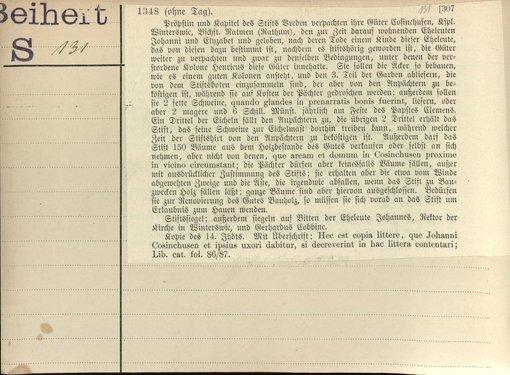 Beiheft
S 131
1348 (ohne Tag). 131 [307
Pröpstin und Kapitel des Stifts Vreden verpachten ihre Güter Cosinchusen, Kspl.
Winterswic, Bschft. Ratmen (Rathum), den zur Zeit darauf wohnenden Eheleuten
Johanni und Elyzabet und geloben, nach deren Tode einem Kinde dieser Eheleute,
das von diesen dazu bestimmt ist, nachdem es stiftshörig geworden ist, die Güter
weiter zu verpachten und zwar zu denselben Bedingungen, unter denen der ver-
storbene Kolone Henricus diese Güter innehatte. Sie sollen die Äcker so bebauen,
wie es einem guten Kolonen ansteht, und den 3. Teil der Garben abliefern, die
von dem Stiftsboten einzusammeln sind, der aber von den Anpächtern zu be-
köstigen ist, während sie auf Kosten der Pächter gedroschen werden; außerdem sollen
sie 2 fette Schweine, quando glandes in prenarratis bonis fuerint, liefern, oder
aber 2 magere und 6 Schill. Münst. jährlich am Feste des Papstes Clemens.
Ein Drittel der Eicheln fällt den Anpächtern zu, die übrigen 2 Drittel erhält das
Stift, das seine Schweine zur Eichelmast dorthin treiben kann, während welcher
Zeit der Stiftshirt von den Anpächtern zu beköstigen ist. Außerdem darf das
Stift 150 Bäume aus dem Holzbestande des Gutes verkaufen oder selbst an sich
nehmen, aber nicht von denen, que aream et domum in Cosinchusen proxime
in vicino circumstant; die Pächter dürfen aber keinesfalls Bäume fällen, außer
mit ausdrücklicher Zustimmung des Stifts; sie erhalten aber die etwa vom Winde
abgewehten Zweige und die Äste, die irgendwie abfallen, wenn das Stift zu Bau-
zwecken Holz fällen läßt; ganze Bäume sind aber hiervon ausgeschlossen. Bedürfen
sie zur Renovierung des Gutes Bauholz, so müssen sie sich vorab an das Stift um
Erlaubnis zum Hauen wenden.
Stiftssiegel; außerdem siegeln auf Bitten der Eheleute Johannes, Rektor der
Kirche in Winterswic, und Gerhardus Lobbinc.
Kopie des 14. Jhdts. Mit Überschrift: Hec est copia littere, que Johanni
Cosinchusen et ipsius uxori dabitur, si decreverint in hac littera contentari;
Lib. cat. fol. 86/87.